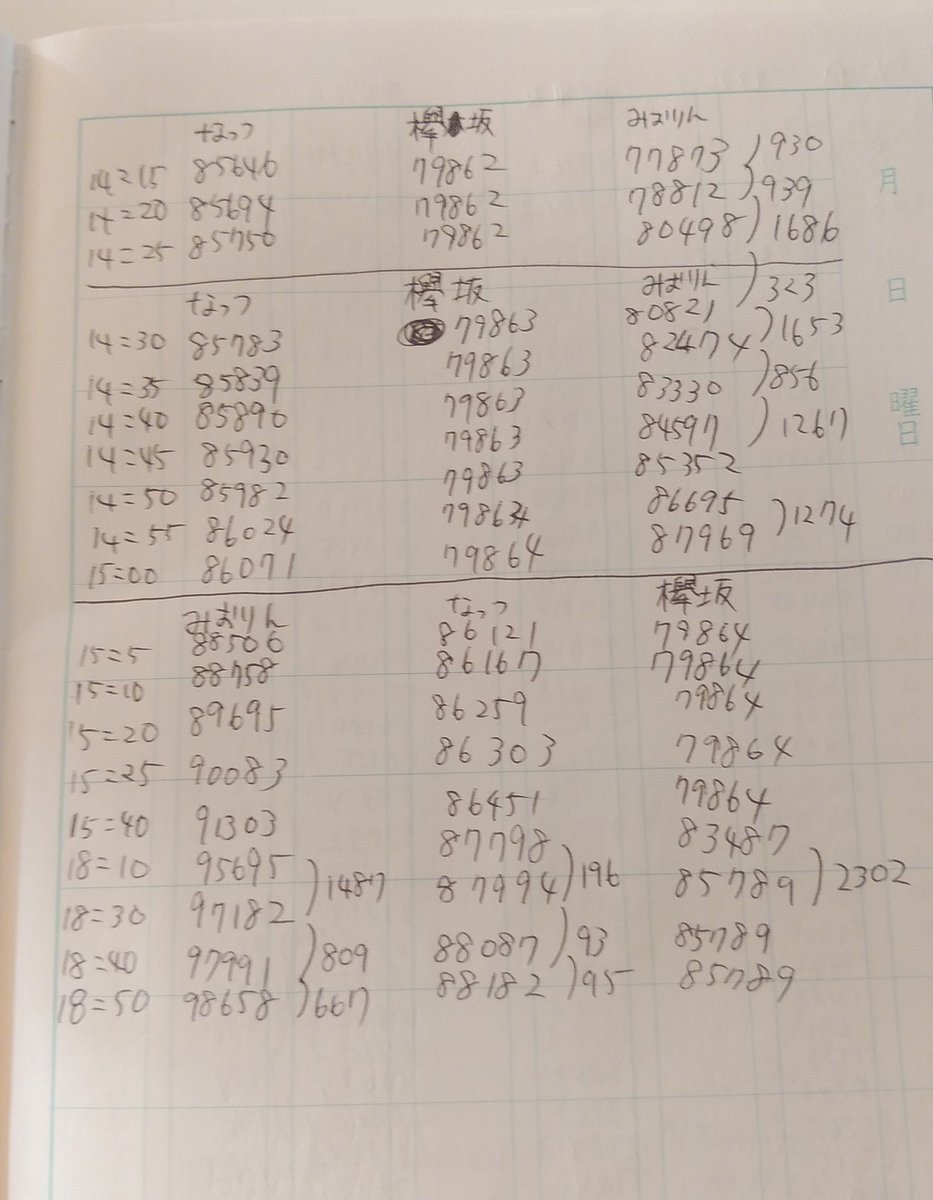 なっつ 欅坂 みおりん
14=15 85646 79862 77873 )930
14=20 85694 79862 78812 )939
14=25 85750 79862 80498 )1686
なっつ 欅坂 みおりん )323
14=30 85783 79863 80821
14=35 85839 79863 82474 )1653
14=40 85890 79863 83330 )856
14=45 85930 79863 84597 )1267
14=50 85982 79863 85352
14=55 86024 79864 86695
15=00 86071 79864 87969 )1274
みおりん なっつ 欅坂
15=5 88506 86121 79864
15=10 88758 86167 79864
15=20 89695 86259 79864
15=25 90083 86303 79864
15=40 91303 86451 79864
18=10 95695 87798 83487
18=30 97182 )1487 87994 )196 85789 )2302
18=40 97991 )809 88087 )93 85789
18=50 98658 )667 88182 )95 85789
月
日
曜日